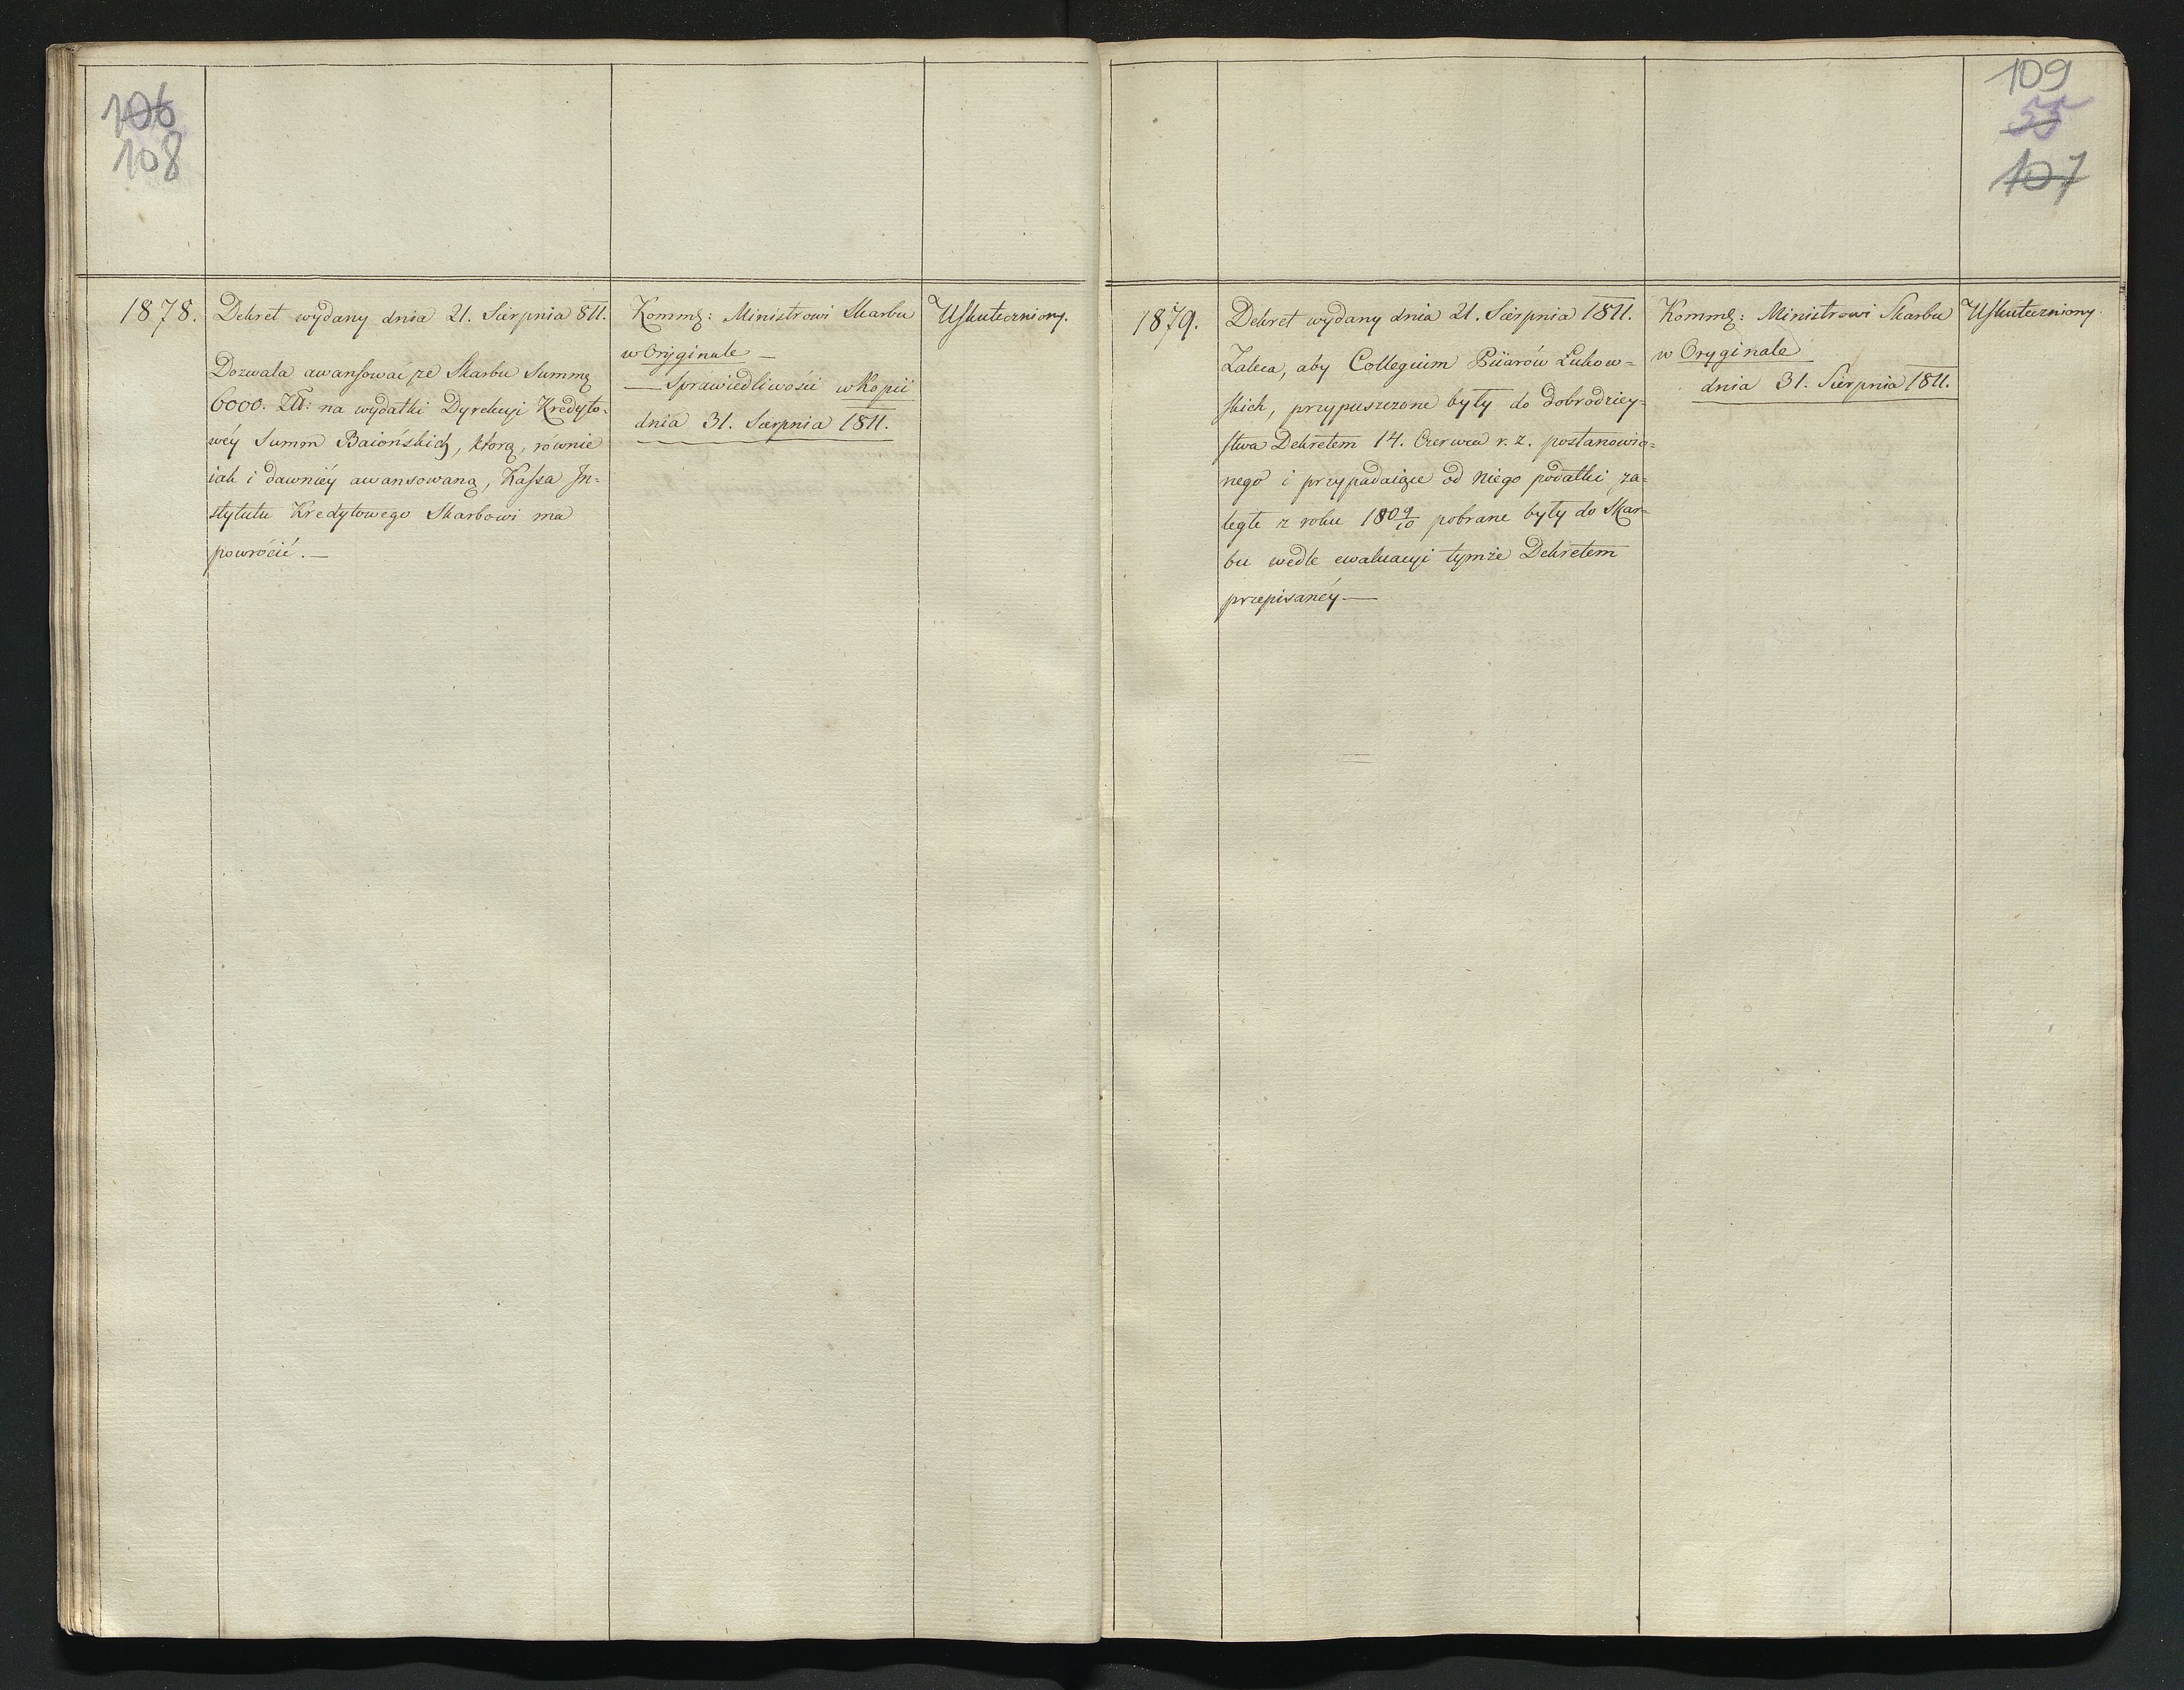 106
108
1878.
Dekret wydany dnia 21. Sierpnia 811.
Dozwala awansować ze Skarbu Summę
6000. Zł: na wydatki Dyrekcyi Kredyto-
wéy Summ Baiońskich, którą, równie
iak i dawniéy awansowaną, Kassa In-
stytutu Kredytowego Skarbowi ma
powrócić. —
Kommę: Ministrowi Skarbu
w Oryginale —
— Sprawiedliwości w Kopii
dnia 31. Sierpnia 1811.
Uskuteczniony.
109
55
107
1879.
Dekret wydany dnia 21. Sierpnia 1811.
Zaleca, aby Collegium Piiarów Łukow=
skich, przypuszczone były do dobrodziey=
stwa Dekretem 14. Czerwca r. z. postanowio=
nego i przypadaiące od niego podatki, za=
ległe z roku 1809/10 pobrane były do Skar=
bu wedle ewaluacyi tymże Dekretem
przepisanéy —
Kommę: Ministrowi Skarbu
w Oryginale
dnia 31. Sierpnia 1811.
Uskuteczniony.